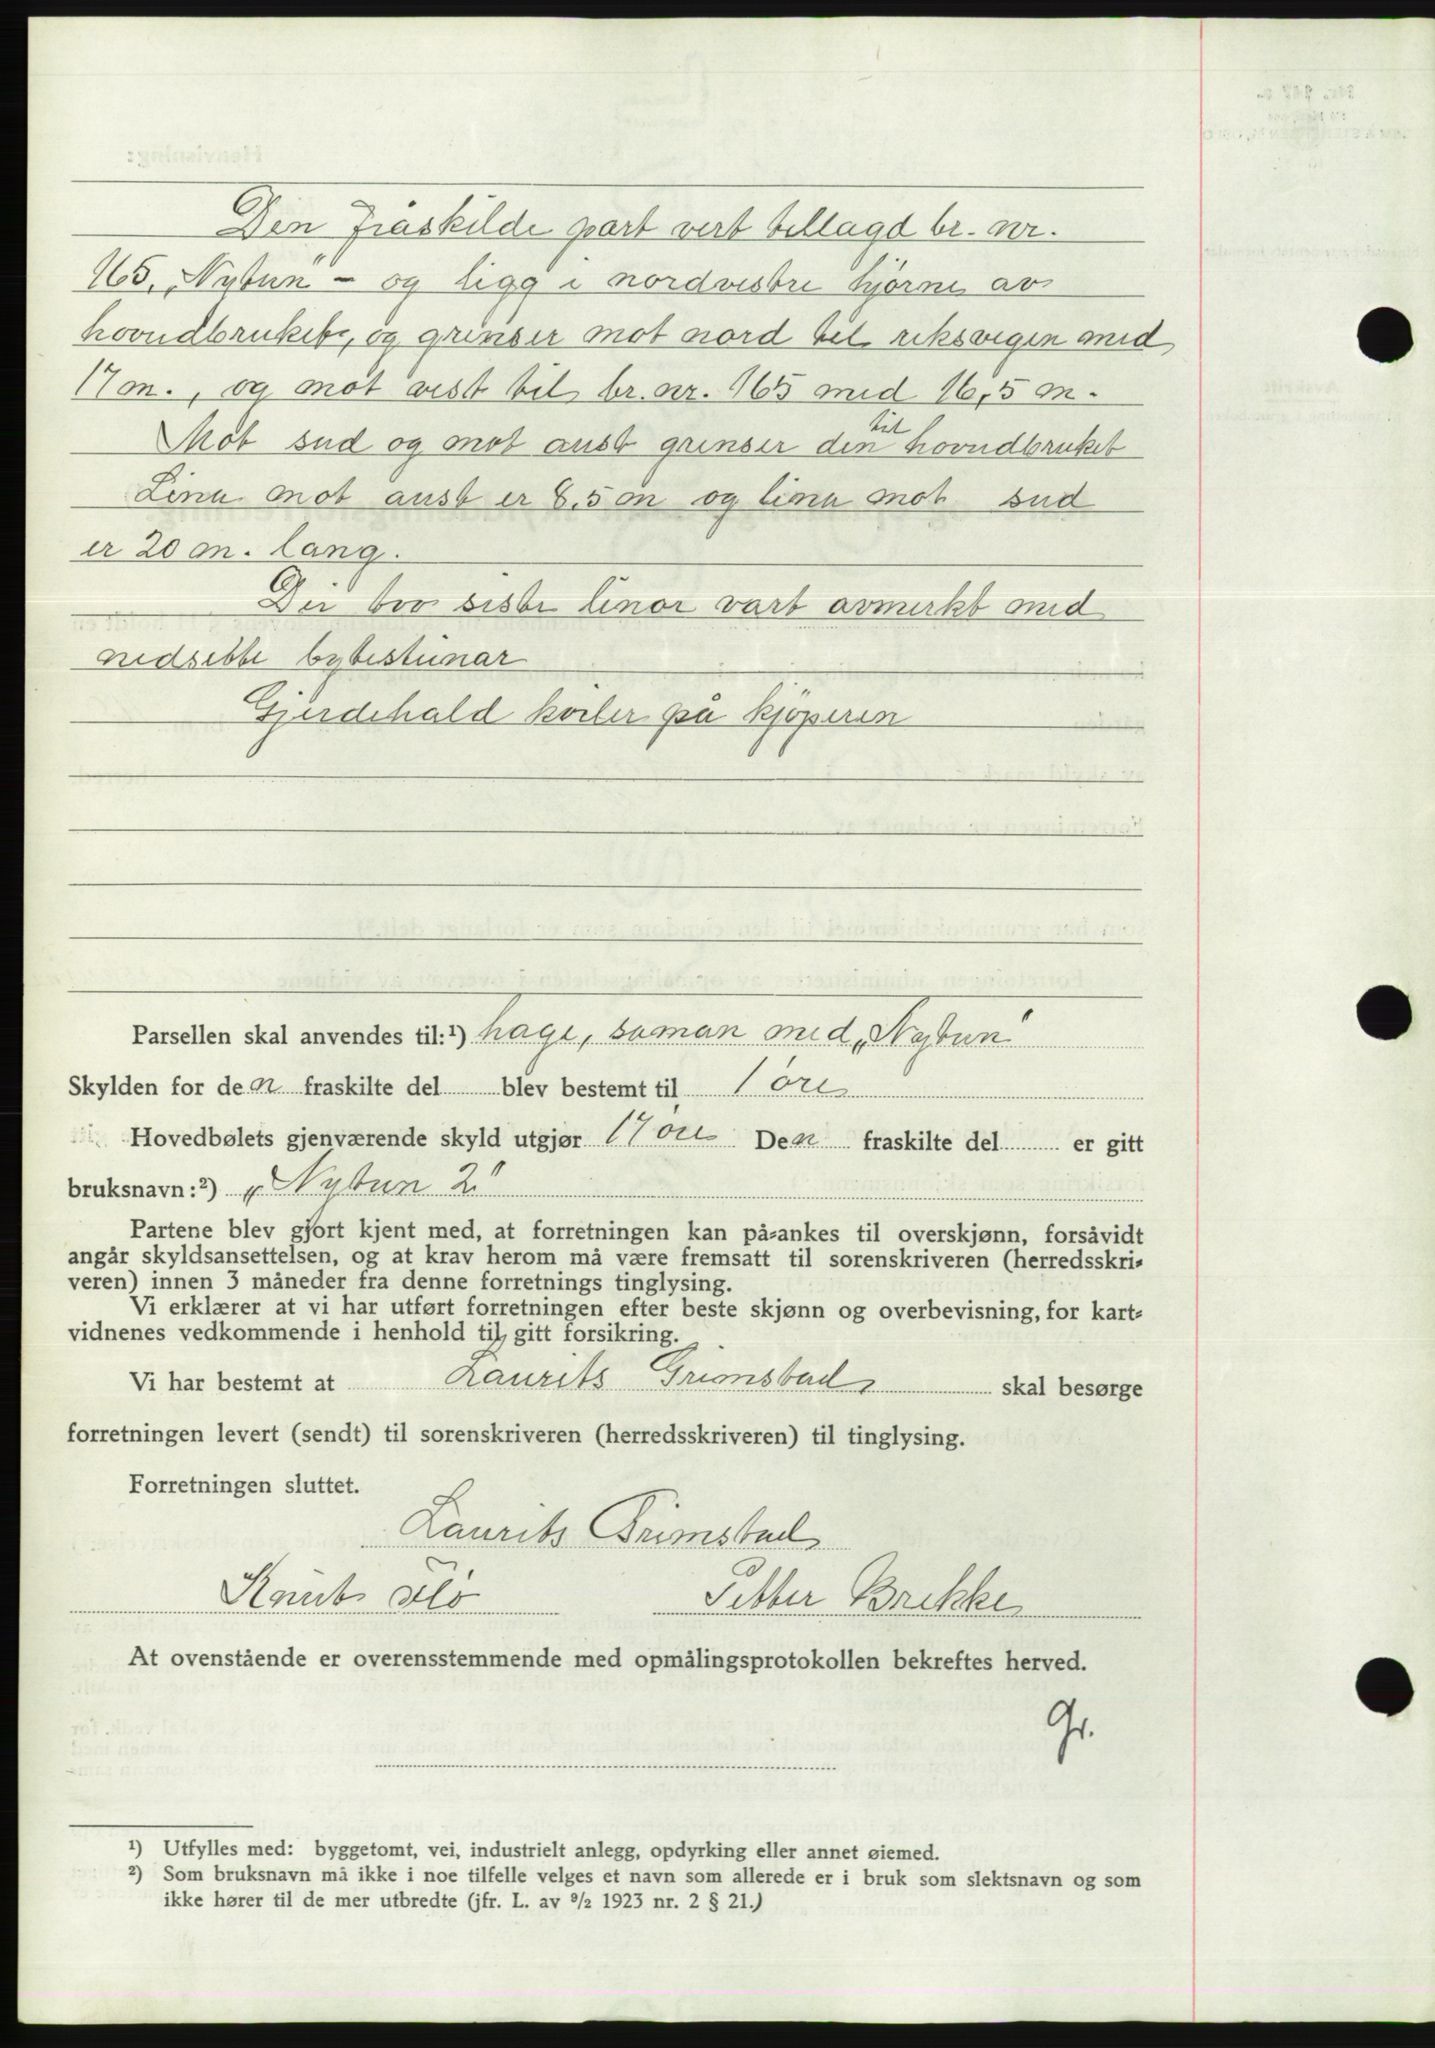 Den fråskilde part vert tillagd br. nr.
165, „Nytun" - og ligg i nordvestre hjørne av
hovudbruket, og grenser mot nord til riksvegen med
17 m., og mot vest til br. nr. 165 med 16,5 m.
Mot sud og mot aust grenser den til hovudbruket
Lina mot aust er 8,5 m og lina mot sud
er 20 m. lang.
Dei tvo siste linor vart avmerkt med
nedsette bytesteinar
Gjerdehald kviler på kjøperen
Parsellen skal anvendes til:¹) hage, saman med „Nytun"
Skylden for den fraskilte del blev bestemt til 1 øre
Hovedbølets gjenværende skyld utgjør 17 øre Den fraskilte del er gitt
bruksnavn:²) „Nytun 2"
Partene blev gjort kjent med, at forretningen kan på-ankes til overskjønn, forsåvidt
angår skyldsansettelsen, og at krav herom må være fremsatt til sorenskriveren (herredsskri-
veren) innen 3 måneder fra denne forretnings tinglysing.
Vi erklærer at vi har utført forretningen efter beste skjønn og overbevisning, for kart-
vidnenes vedkommende i henhold til gitt forsikring.
Vi har bestemt at Laurits Grimstad skal besørge
forretningen levert (sendt) til sorenskriveren (herredsskriveren) til tinglysing.
Forretningen sluttet.
Laurits Grimstad
Knut Flo Petter Brekke
At ovenstående er overensstemmende med opmålingsprotokollen bekreftes herved.
Gr.
¹) Utfylles med: byggetomt, vei, industrielt anlegg, opdyrking eller annet øiemed.
²) Som bruksnavn må ikke i noe tilfelle velges et navn som allerede er i bruk som slektsnavn og som
ikke hører til de mer utbredte (jfr. L. av ⁹/₂ 1923 nr. 2 § 21.)